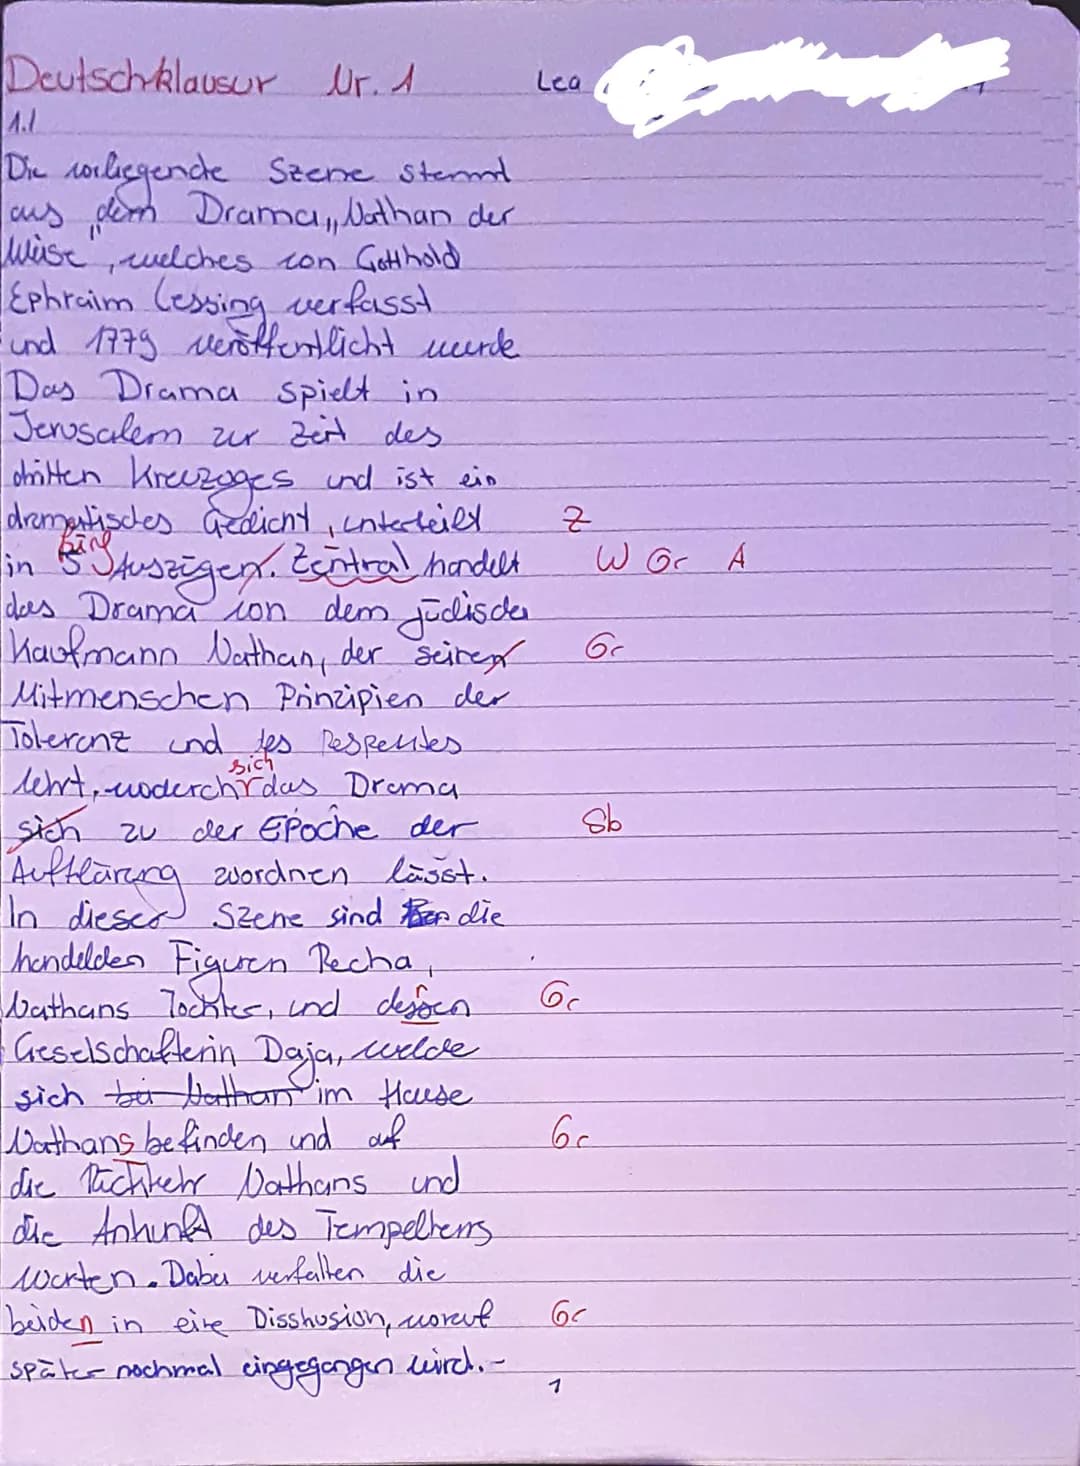 Deutschklausur Nr. 1 Lea
1.)
Die vorliegende Szene stammt
aus dem Drama „Nathan der
Weise", welches von Gotthold
Ephraim Lessing verfasst
und 1779 veröffentlicht wurde
Das Drama spielt in
Jerusalem zur Zeit des
dritten Kreuzoges und ist ein
dramatisches Gedicht, unterteilt Z
in 5 fünf Auszügen. Zentral handelt W Gr A
das Drama von dem jüdischen
Kaufmann Nathan, der seinen Gr
Mitmenschen Prinzipien der
Toleranz und des Respektes
lehrt, wodurch sich das Drama
sich zu der Epoche der Sb
Aufklärung zuordnen lässt.
In dieser Szene sind die
handelden Figuren Recha,
Nathans Tochter, und dessen r Gr
Geselschafterin Daja, welche
sich bei Nathan im Hause
Nathans befinden und auf Gr
die Rückkehr Nathans und
die Ankunft des Tempelherns
warten. Dabei verfallen die
beiden in eine Disskusion, worauf Gr
später nochmal eingegangen wird. -
1